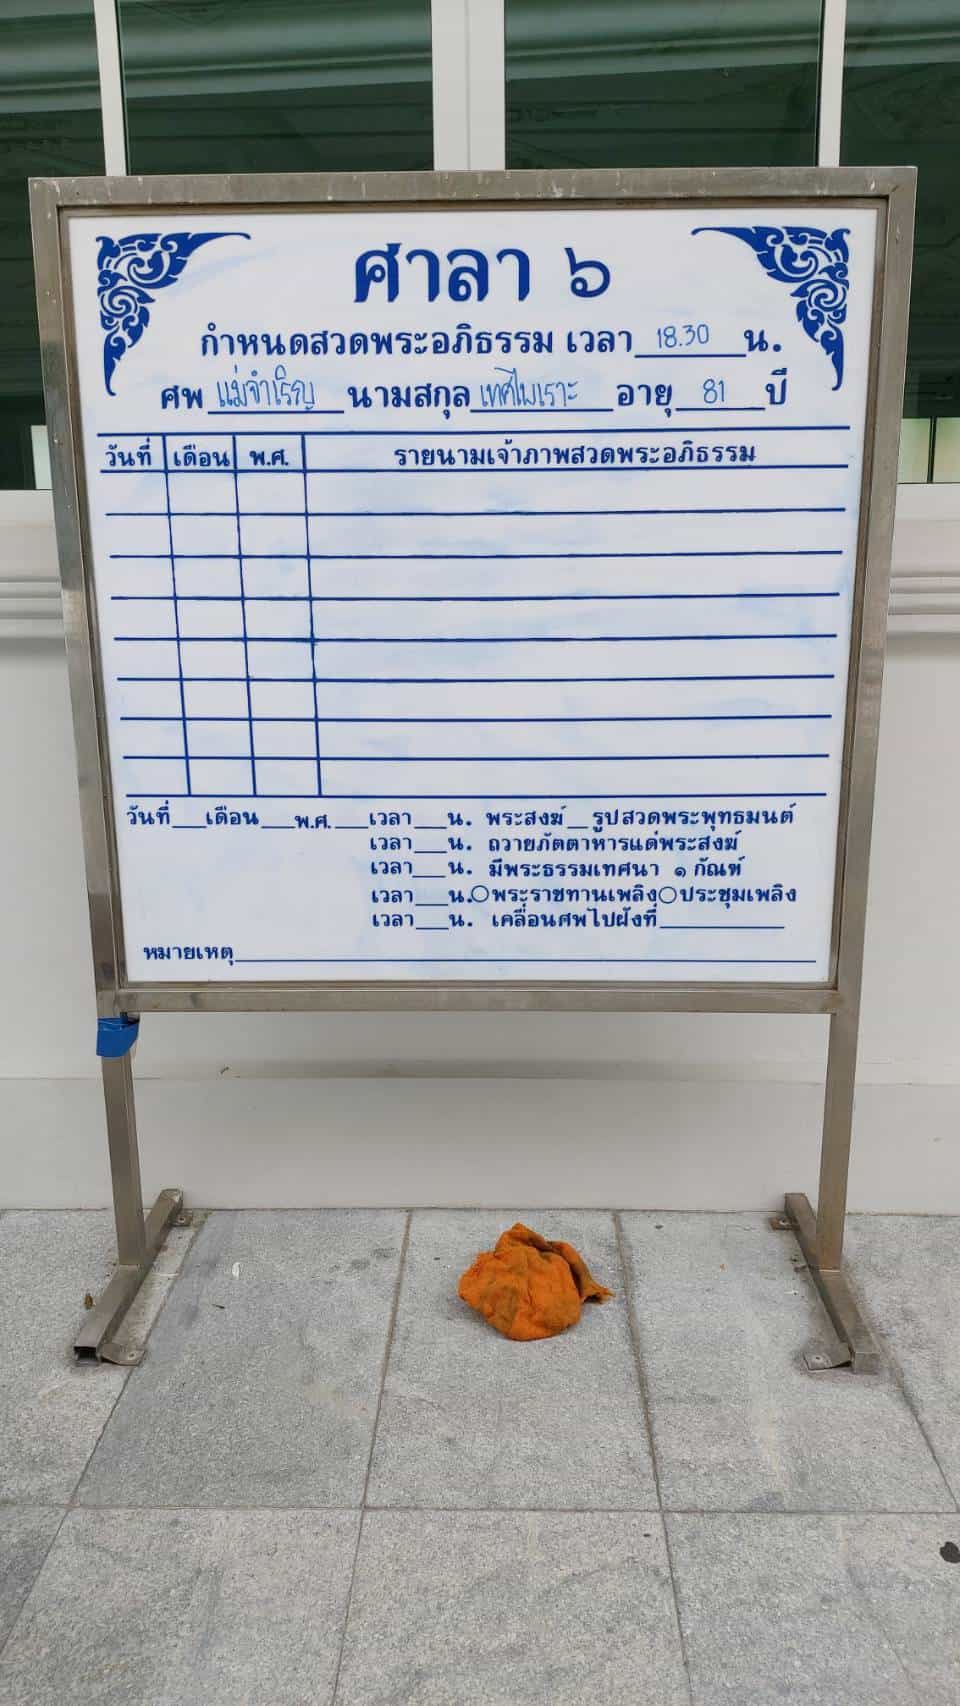 ศาลา ๖
กำหนดสวดพระอภิธรรม เวลา 18.30 น.
ศพ แม่จำเริญ นามสกุล เทศไพเราะ อายุ 81 ปี
วันที่ เดือน พ.ศ. รายนามเจ้าภาพสวดพระอภิธรรม
วันที่___เดือน___พ.ศ.___เวลา___น. พระสงฆ์__รูปสวดพระพุทธมนต์
เวลา___น. ถวายภัตตาหารแด่พระสงฆ์
เวลา___น. มีพระธรรมเทศนา ๑ กัณฑ์
เวลา___น.○พระราชทานเพลิง○ประชุมเพลิง
เวลา___น. เคลื่อนศพไปฝังที่__________
หมายเหตุ__________